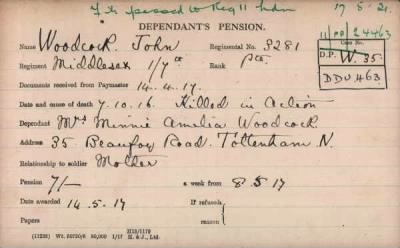 passed to Reg 11 Ldn 17 5. 21.
DEPENDANT'S PENSION.
11/DD/24463
Case No.
Name Woodcock. John Regimental No. 3281
D.P. W. 35.
Regiment Middlesex 1/7th Rank Pte.
DDU463
Documents received from Paymaster 14.4.17.
Date and cause of death 7.10.16. Killed in Action
Dependant Mrs Minnie Amelia Woodcock
Address 35 Beaufoy Road. Tottenham N.
Relationship to soldier Mother
Pension 7/- a week from 8 5 17
Date awarded 14.5.17 If refused,
Papers reason